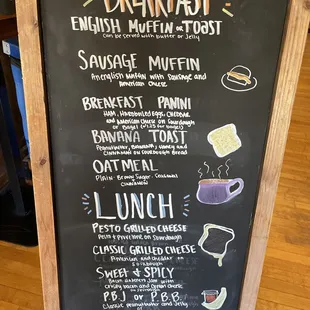 BREAKFAST
ENGLISH MUFFIN or TOAST
Can be served with butter or Jelly
SAUSAGE MUFFIN
An english muffin with Sausage and
American Cheese
BREAKFAST PANINI
HAM, Hardboiled eggs, CHEDDAR
and American cheese on Sourdough
or Bagel
BANANA TOAST
Peanutbutter, Bananas, Honey and
Cinnamon on Sourdough Bread
OATMEAL
Plain - Brown Sugar -
Cinnamon
LUNCH
PESTO GRILLED CHEESE
Pesto & Provolone on Sourdough
CLASSIC GRILLED CHEESE
American and cheddar on
Sourdough
SWEET & SPICY
Bacon Jalapeno Jam with
Crispy bacon and Cream cheese
P.B.J or P.B.B.
Classic Peanutbutter and Jelly